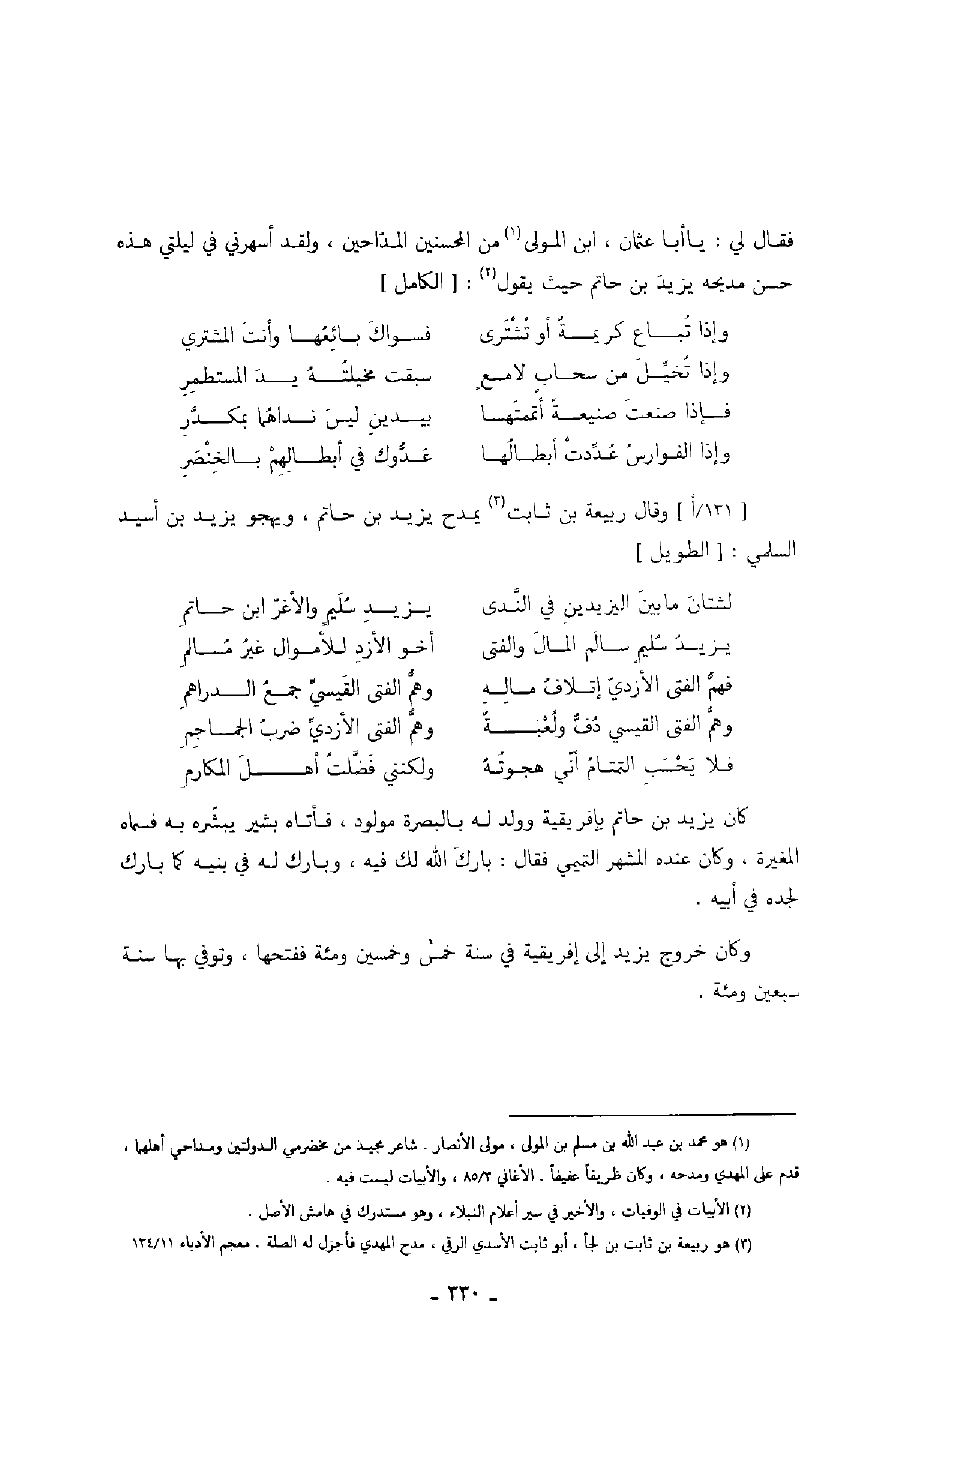 فقال لي : ياأبا عثمان ، ابن المولى(١) من المحسنين المدّاحين ، ولقد أسهرني في ليلتي هذه
حسن مديحه يزيدَ بن حاتم حيث يقول(٢) : [ الكامل ]
وإذا تُباع كريمةٌ أو تُشْتَرى فسواكَ بائعُها وأنتَ المشتري
وإذا تُخيِّلَ من سحابٍ لامعٍ سبقت مخيلتُهُ يدَ المستطمِرِ
فإذا صنعتَ صنيعةً أتممتَها بيدينِ ليسَ نداهُما بمكدَّرِ
وإذا الفوارسُ عُدِّدتْ أبطالُها عدُّوكَ في أبطالِهِمْ بالخِنْصَرِ
[ ١٣١/أ ] وقال ربيعة بن ثابت(٣) يمدح يزيد بن حاتم ، ويهجو يزيد بن أسيد
السلمي : [ الطويل ]
لشتانَ مابينَ اليزيدينِ في النَّدى يزيدِ سُلَيمٍ والأغرّ ابن حاتمِ
يزيدُ سُليمٍ سالَم المالَ والفتى أخو الأزدِ للأموالِ غيرُ مُسالمِ
فهمُّ الفتى الأزديّ إتلافُ مالِهِ وهمُّ الفتى القَيسيِّ جمعُ الدراهمِ
وهمُّ الفتى القيسي دُفٌّ ولُعْبَةٌ وهمُّ الفتى الأزديِّ ضربُ الجماجمِ
فلا يَحْسَبِ التمتامُ أنّي هجوتُهُ ولكنني فَضَّلتُ أهلَ المكارمِ
كان يزيد بن حاتم بإفريقية وولد له بالبصرة مولود ، فأتاه بشير يبشّره به فسماه
المغيرة ، وكان عنده المشهر التميمي فقال : باركَ الله لك فيه ، وبارك له في بنيه كما بارك
لجده في أبيه .
وكان خروج يزيد إلى إفريقية في سنة خمسٍ وخمسين ومئة ففتحها ، وتوفي بها سنة
سبعين ومئة .
(١) هو محمد بن عبد الله بن مسلم بن المولى ، مولى الأنصار . شاعر مجيد من مخضرمي الدولتين ومداحي أهلها ،
قدم على المهدي ومدحه ، وكان ظريفاً عفيفاً . الأغاني ٨٥/٣ ، والأبيات ليست فيه .
(٢) الأبيات في الوفيات ، والأخير في سير أعلام النبلاء ، وهو مستدرك في هامش الأصل .
(٣) هو ربيعة بن ثابت بن لجأ ، أبو ثابت الأسدي الرقي ، مدح المهدي فأجزل له الصلة . معجم الأدباء ١٣٤/١١
- ٣٣٠ -